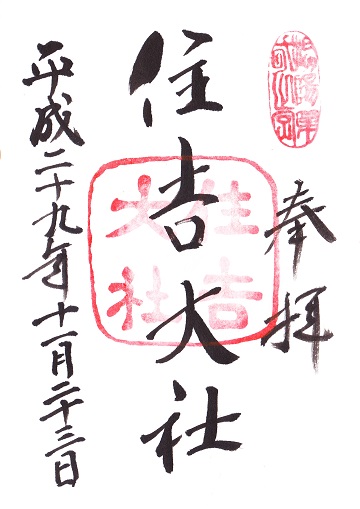 奉拝
住吉大社
住吉
大社
平成二十九年十一月二十三日